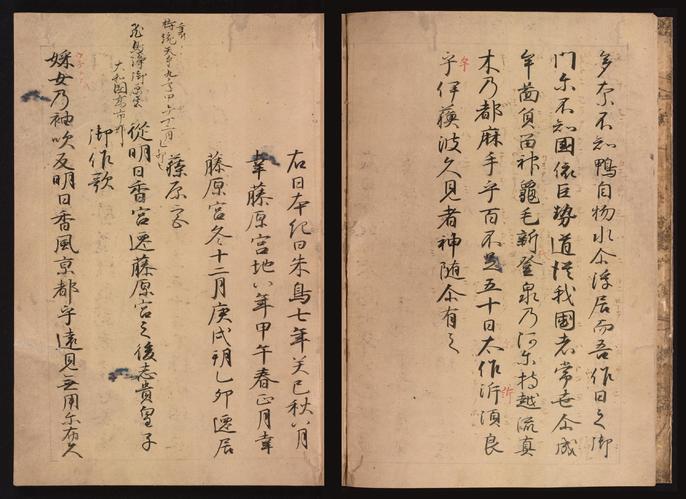 多奈不知鴨自物水尒浮居而吾作日之御
門尒不知國依巨勢道従我國者常世尒成
牟啚負留神龜毛新登泉乃河尒持越流真
木乃都麻手乎百不足五十日太作泝須良
泝
牟
乎伊蘓波久見者神随尒有之
右日本紀曰朱鳥七年癸巳秋八月
幸藤原宮地八年甲午春正月幸
藤原宮冬十二月庚戌朔乙卯遷居
藤原宮
持統天皇九年
飛鳥浄御原宮
大和國高市郡
従明日香宮遷藤原宮之後志貴皇子
御作歌
婇女乃袖吹反明日香風京都乎遠見無用尒布久